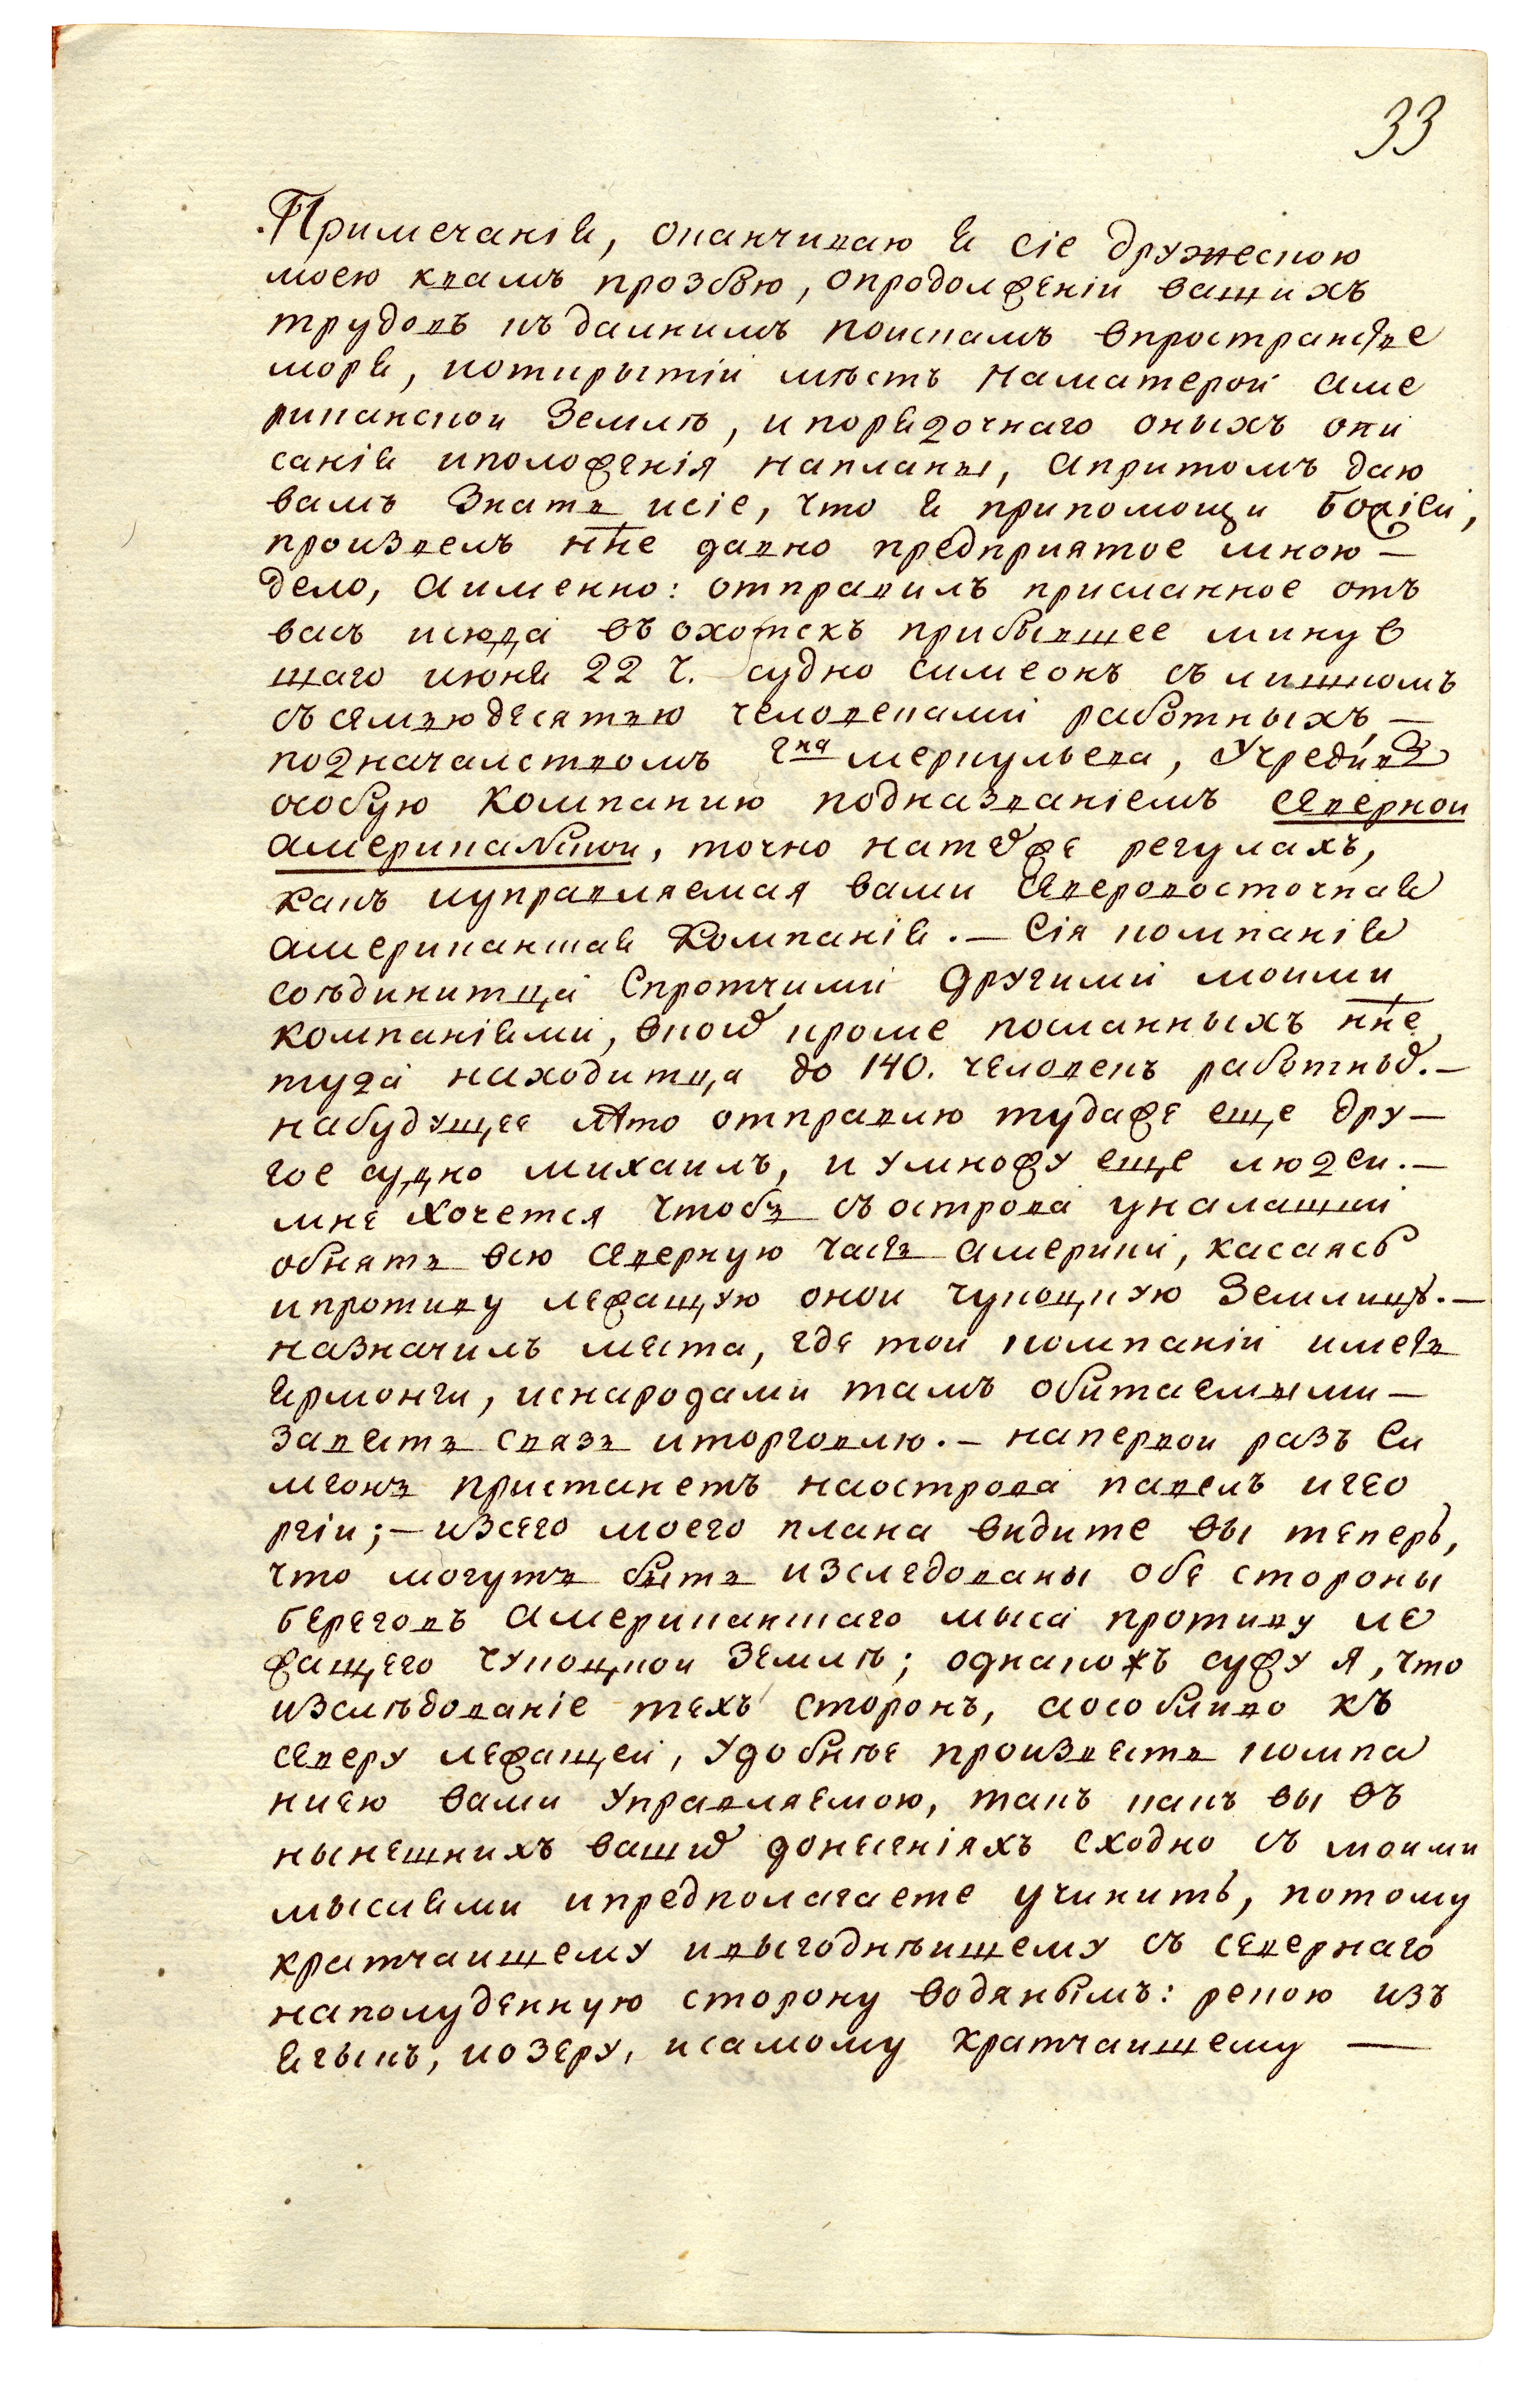 33
Примечанiя, оканчиваю я сiе дружескою
моею квамъ прозбою, опродолженiи вашихъ
трудовъ къ далнимъ поискамъ впространстве
моря, иоткрытiи мѣстъ наматерой аме
риканской землѣ, и порядочнаго оныхъ опи
санiя иположенiя напланы, апритомъ даю
вамъ знать исiе, что я припомощи божiей,
произвелъ нне давно предприятое мною —
дело, аименно: отправилъ присланное отъ
васъ исюда въ охотскъ прибывшее минув
шаго июня 22 ч. судно симеонъ съ лишкомъ
съ семьюдесятью человеками работныхъ, —
подначалством гна меркульева, учредивъ
особую компанию подназванiемъ северной
американской, точно натехже регулахъ,
какъ иуправляемая вами северовосточная
американская компанiя. — Сiя компанiя
соѣдинитца спротчими другими моими
компанiями, вкоих кроме посланныхъ нне
туда находитца до 140. человекъ работных. —
набудущее лето отправлю тудаже еще дру —
гое судно михаилъ, и умножу еще людей. —
мне хочется чтобъ съ острова уналашки
обнять всю северную часть америки, касаясь
ипротиву лежащую оной чукоцкую землицу. —
назначилъ места, где той компанiи иметь
ярмонги, иснародами тамъ обитаемыми —
завесть связь иторговлю. — напервой разъ си
меонъ пристанетъ наострова павелъ игео
ргiи; — изсего моего плана видите вы теперь,
что могутъ быть изследованы обе стороны
береговъ американскаго мыса противу ле
жащего чукоцкой землѣ; однакожъ сужу я, что
изслѣдованiе техъ сторонъ, аособливо къ
северу лежащей, удобнѣе произвесть компа
ниею вами управляемою, такъ какъ вы въ
нынешнихъ ваших донесенiяхъ сходно съ моими
мыслями ипредполагаете учинить, потому
кратчаишему ивыгоднѣишему съ севернаго
наполуденную сторону водянымъ: рекою изъ
ягыкъ, иозеру, исамому кратчаишему —